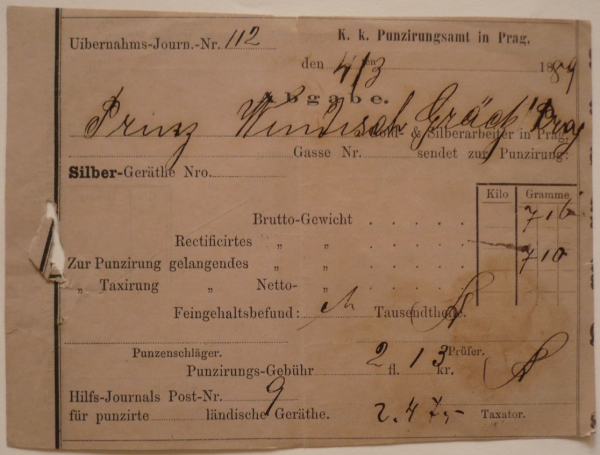 Uibernahms-Journ.-Nr. 112
K. k. Punzirungsamt in Prag.
den 4/3 ten 1889
Abgabe.
Prinz Windisch Grätz Prag
Gold- & Silberarbeiter in Prag,
Gasse Nr. sendet zur Punzirung:
Silber-Geräthe Nro.
Kilo Gramme
Brutto-Gewicht . . . . . 716
Rectificirtes „ „ . . . . .
Zur Punzirung gelangendes „ „ . . . . . 710
„ Taxirung „ Netto- „ . . . . .
Feingehaltsbefund: Tausendtheile.
Punzenschläger. Prüfer.
Punzirungs-Gebühr 2 fl. 13 kr.
Hilfs-Journals Post-Nr. 9
für punzirte ländische Geräthe. 2.47,- Taxator.